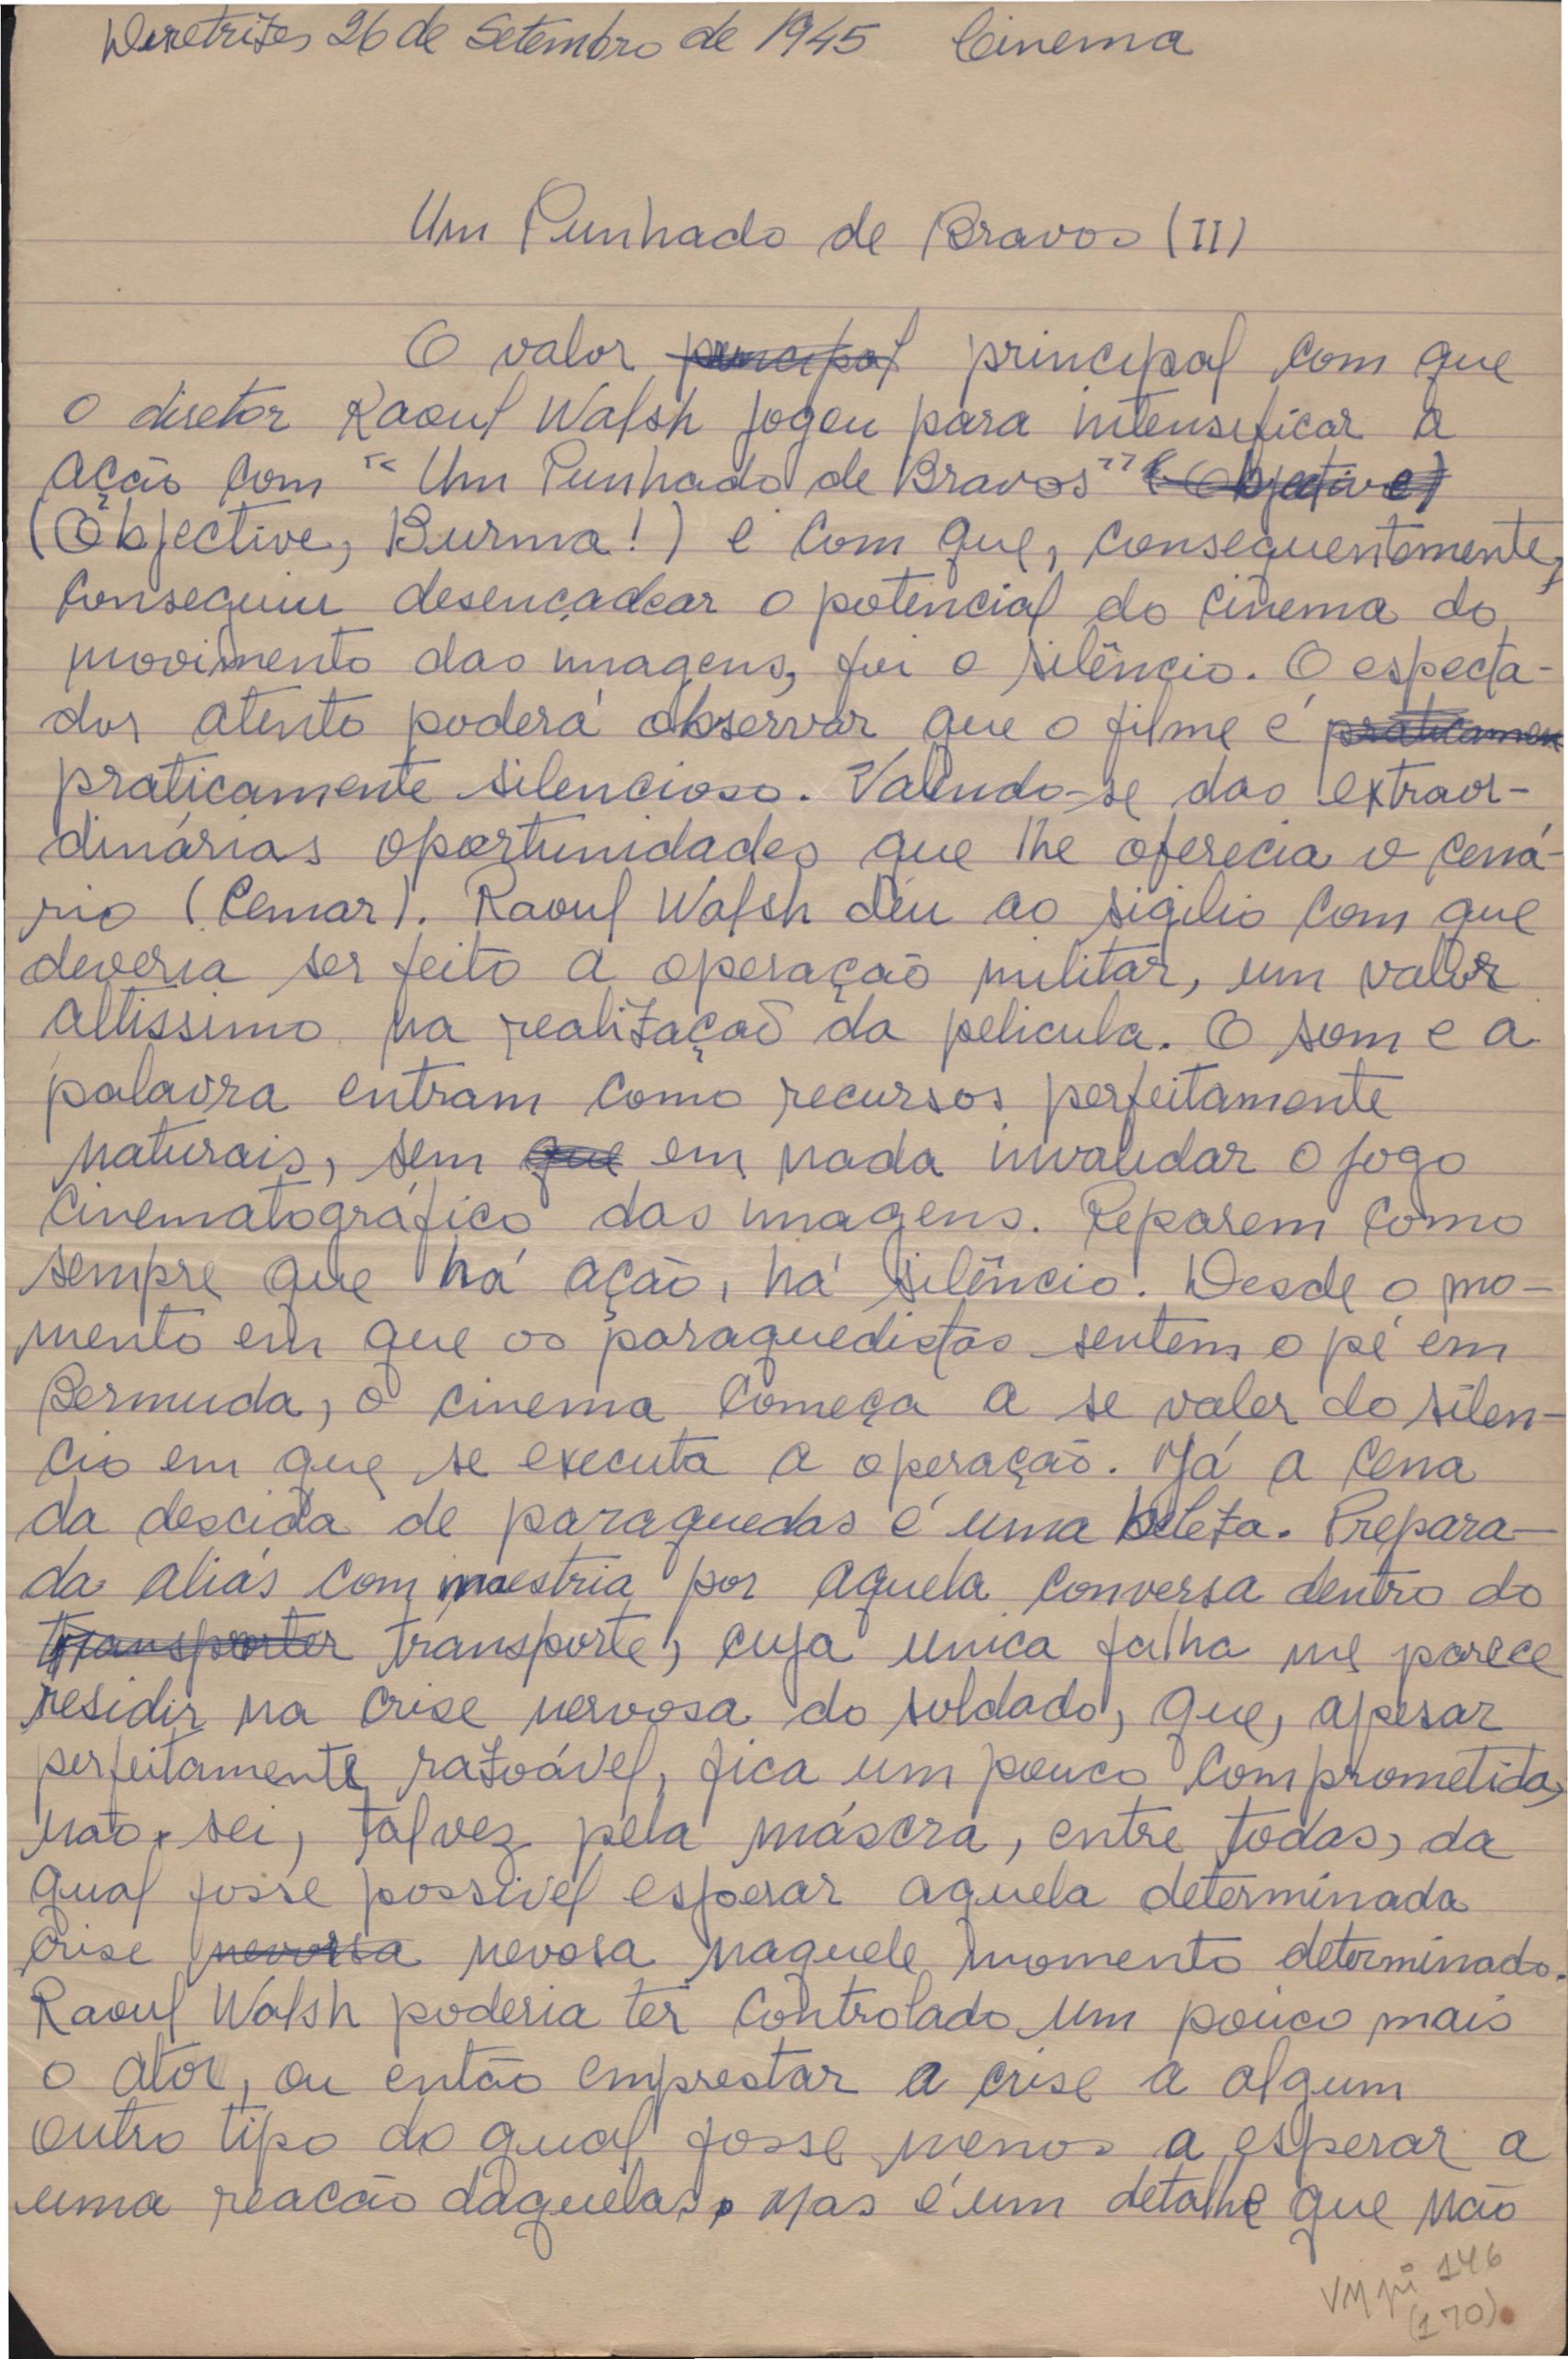 Diretrizes 26 de Setembro de 1945 Cinema
Um Punhado de Bravos (II)
O valor principal principal com que
o diretor Raoul Walsh jogou para intensificar a
ação com "Um Punhado de Bravos" (Objective)
(Objective, Burma!) e com que, consequentemente,
conseguiu desencadear o potencial do cinema do
movimento das imagens, foi o silêncio. O especta-
dor atento poderá observar que o filme é praticamen
praticamente silencioso. Valendo-se das extraor-
dinárias oportunidades que lhe oferecia o cená-
rio (Cemar). Raoul Walsh deu ao sigilio com que
deveria ser feito a operação militar, um valor
altissimo na realização da pelicula. O som e a
palavra entram como recursos perfeitamente
naturais, sem que em nada invalidar o jogo
cinematográfico das imagens. Reparem como
sempre que há ação, há silêncio. Desde o mo-
mento em que os paraquedistas sentem o pé em
Bermuda, o cinema começa a se valer do silen-
cio em que se executa a operação. Já a cena
da descida de paraquedas é uma beleza. Prepara-
da aliás com maestria por aquela conversa dentro do
transporter transporte, cuja unica falha me parece
residir na crise nervosa do soldado, que, apesar
perfeitamente razoável, fica um pouco comprometida,
não sei, talvez pela máscra, entre todas, da
qual fosse possivel esperar aquela determinada
crise nevorsa nevosa naquele momento determinado.
Raoul Walsh poderia ter controlado um pouco mais
o ator, ou então emprestar a crise a algum
outro tipo do qual fosse menos a esperar a
uma reacão daquelas. Mas é um detalhe que não
VM pi 146
(170)